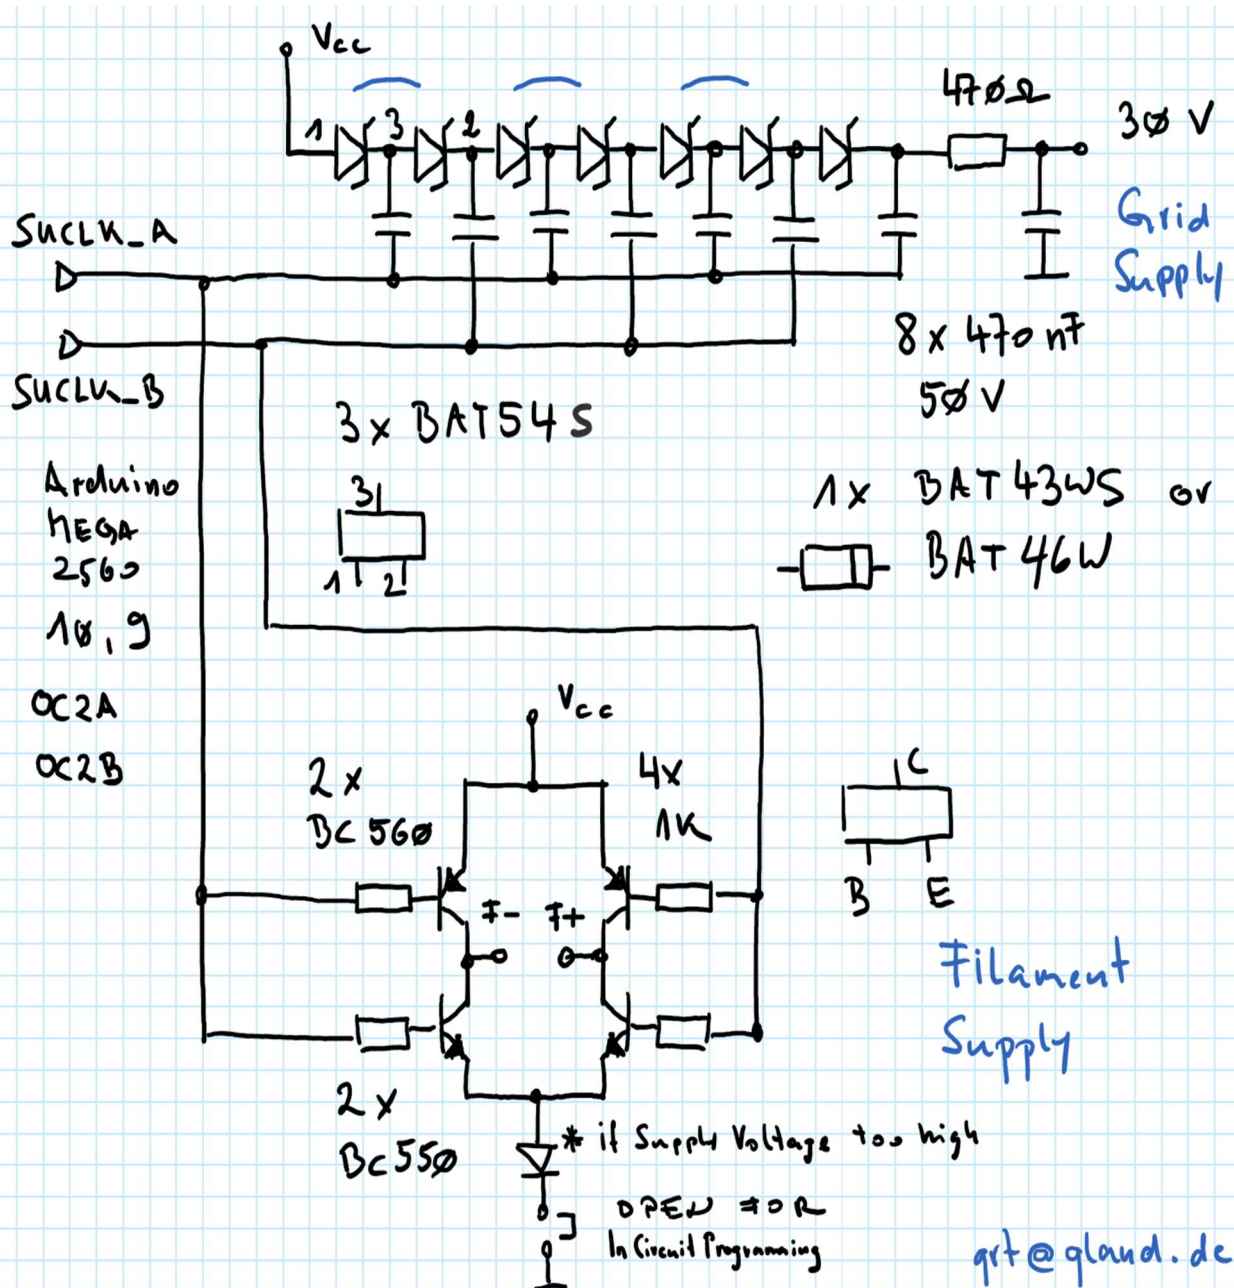 Vcc
1 3 2
470Ω
30 V
Grid
Supply
SUCLK_A
SUCLK_B
8 x 470 nF
50 V
3 x BAT54 S
3
1 2
1x BAT 43WS or
BAT 46W
Arduino
MEGA
2560
10, 9
OC2A
OC2B
Vcc
2 x
BC 560
4x
1K
C
B E
F- F+
Filament
Supply
2 x
BC 550
* if Supply Voltage too high
OPEN FOR
In Circuit Programming
grt@gland.de